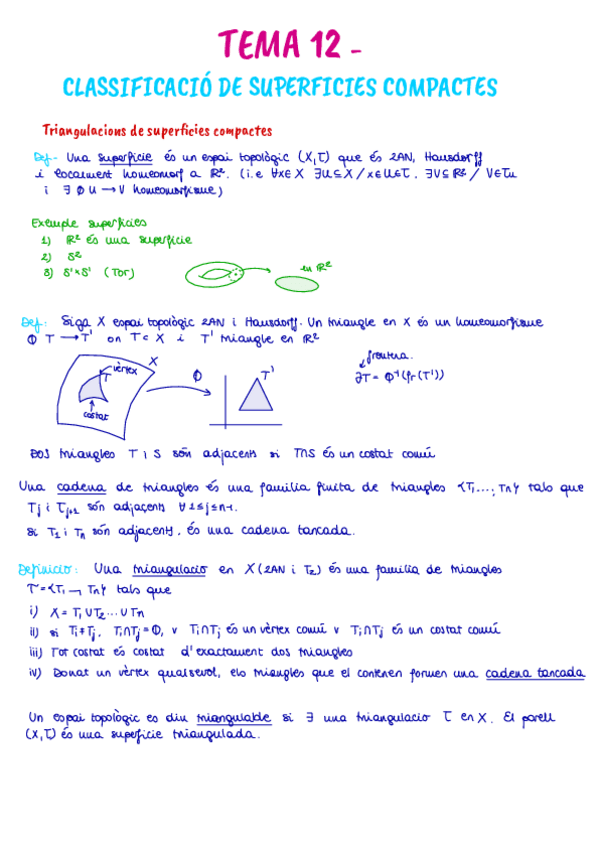 TEMA 12 -
CLASSIFICACIÓ DE SUPERFICIES COMPACTES
Triangulacions de superficies compactes
Def.- Una superficie és un espai topològic (X,τ) que és 2AN, Hausdorff
i localment homeomorf a ℝ². (i.e ∀x∈X ∃U⊆X / x∈U∈τ, ∃V⊆ℝ² / V∈τu
i ∃ Φ U → V homeomorfisme)
Exemple superficies
1) ℝ² és una superficie
2) S²
3) S¹×S¹ (Tor)
en ℝ²
Def: Siga X espai topològic 2AN i Hausdorff. Un triangle en X és un homeomorfisme
Φ T → T' on T⊂X i T' triangle en ℝ²
frontera.
∂T = Φ⁻¹(fr(T'))
X
vèrtex
T
costat
Φ
T'
Dos triangles T i S són adjacents si T∩S és un costat comú
Una cadena de triangles és una familia finita de triangles {T₁,...,Tn} tals que
Tj i Tj+1 són adjacents ∀ 1≤j≤n-1.
Si T₁ i Tn són adjacents, és una cadena tancada.
Definicio: Una triangulacio en X (2AN i T₂) és una familia de triangles
τ={T₁, ..., Tn} tals que
i) X = T₁ ∪ T₂ ... ∪ Tn
ii) si Ti≠Tj, Ti∩Tj=Φ, v Ti∩Tj és un vèrtex comú v Ti∩Tj és un costat comú
iii) Tot costat és costat d'exactament dos triangles
iv) Donat un vèrtex qualsevol, els triangles que el contenen formen una cadena tancada
Un espai topològic es diu triangulable si ∃ una triangulacio τ en X. El parell
(X,τ) és una superficie triangulada.